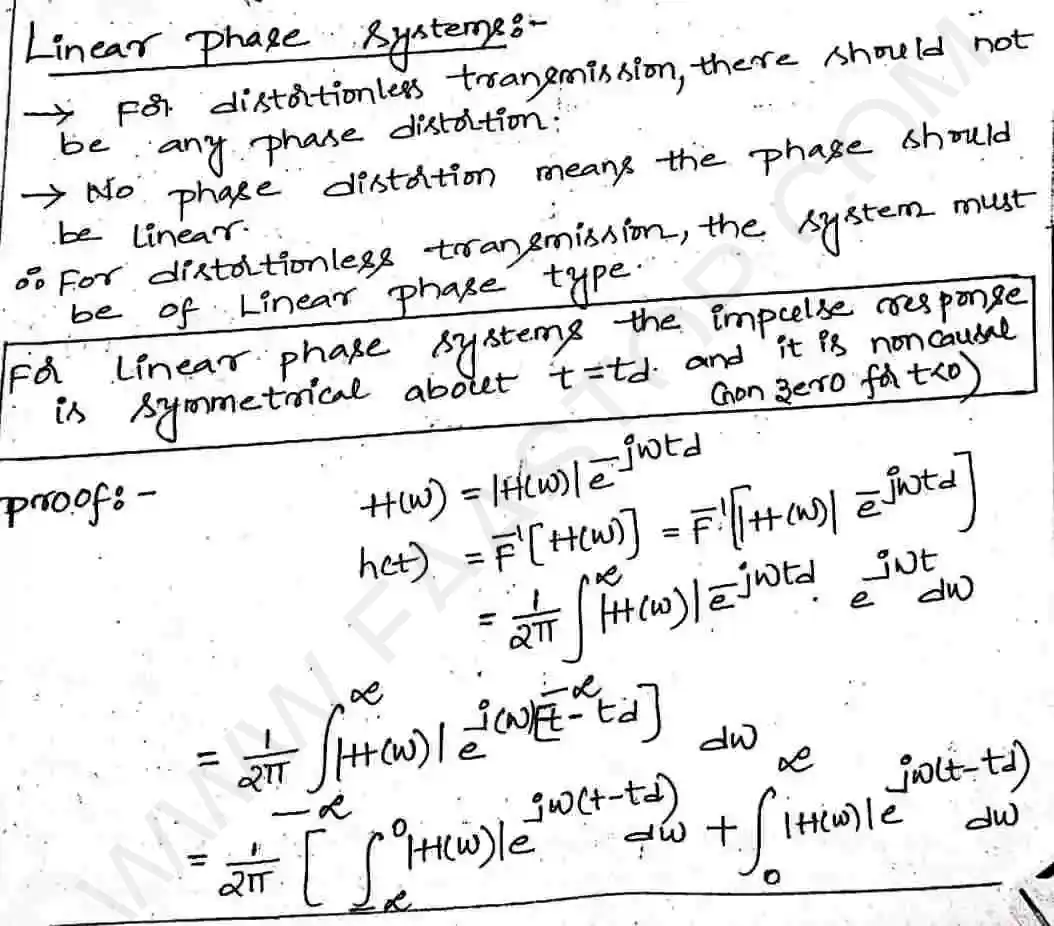 Linear phase systems:-
→ For distortionless transmission, there should not
be any phase distortion.
→ No phase distortion means the phase should
be Linear.
∴ For distortionless transmission, the system must
be of Linear phase type.
For Linear phase systems the impulse response
is symmetrical about t=td. and it is noncausal
(non zero for t<0)
proof:-
H(ω) = |H(ω)| e^{-jωtd}
h(t) = F^{-1}[H(ω)] = F^{-1}[|H(ω)| e^{-jωtd}]
= 1/2π ∫_{-∞}^{∞} |H(ω)| e^{-jωtd} . e^{jωt} dω
= 1/2π ∫_{-∞}^{∞} |H(ω)| e^{j(ω)[t-td]} dω
= 1/2π [ ∫_{-∞}^{0} |H(ω)| e^{jω(t-td)} dω + ∫_{0}^{∞} |H(ω)| e^{jω(t-td)} dω